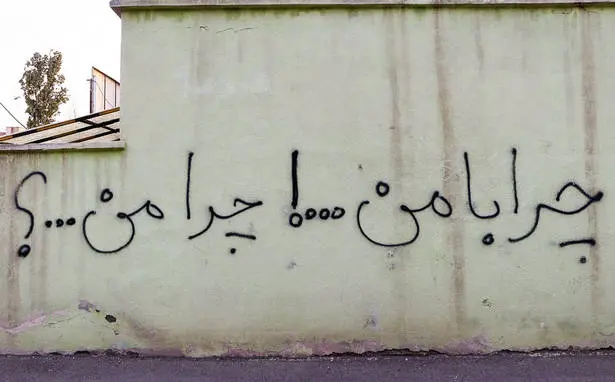 چرا با من ...! چرا من ...؟